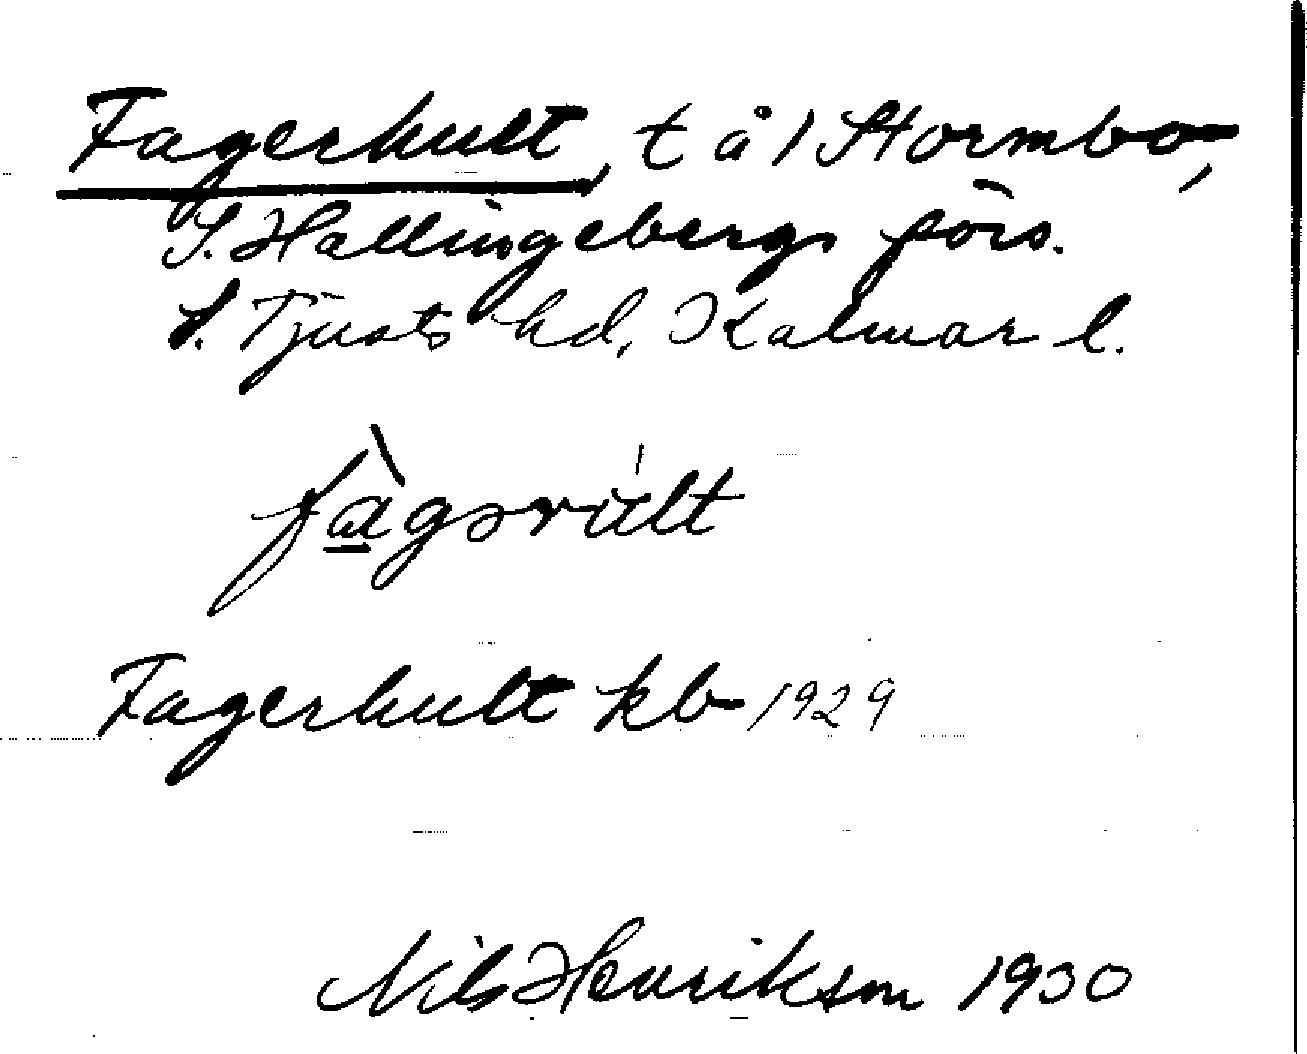 Fagerhult, t å 1 Stormbo,
S. Hallingebergs förs.
S. Tjusts hd, Kalmar l.
fàgərúlt
Fagerhult kb 1929
Nils Henrikson 1930